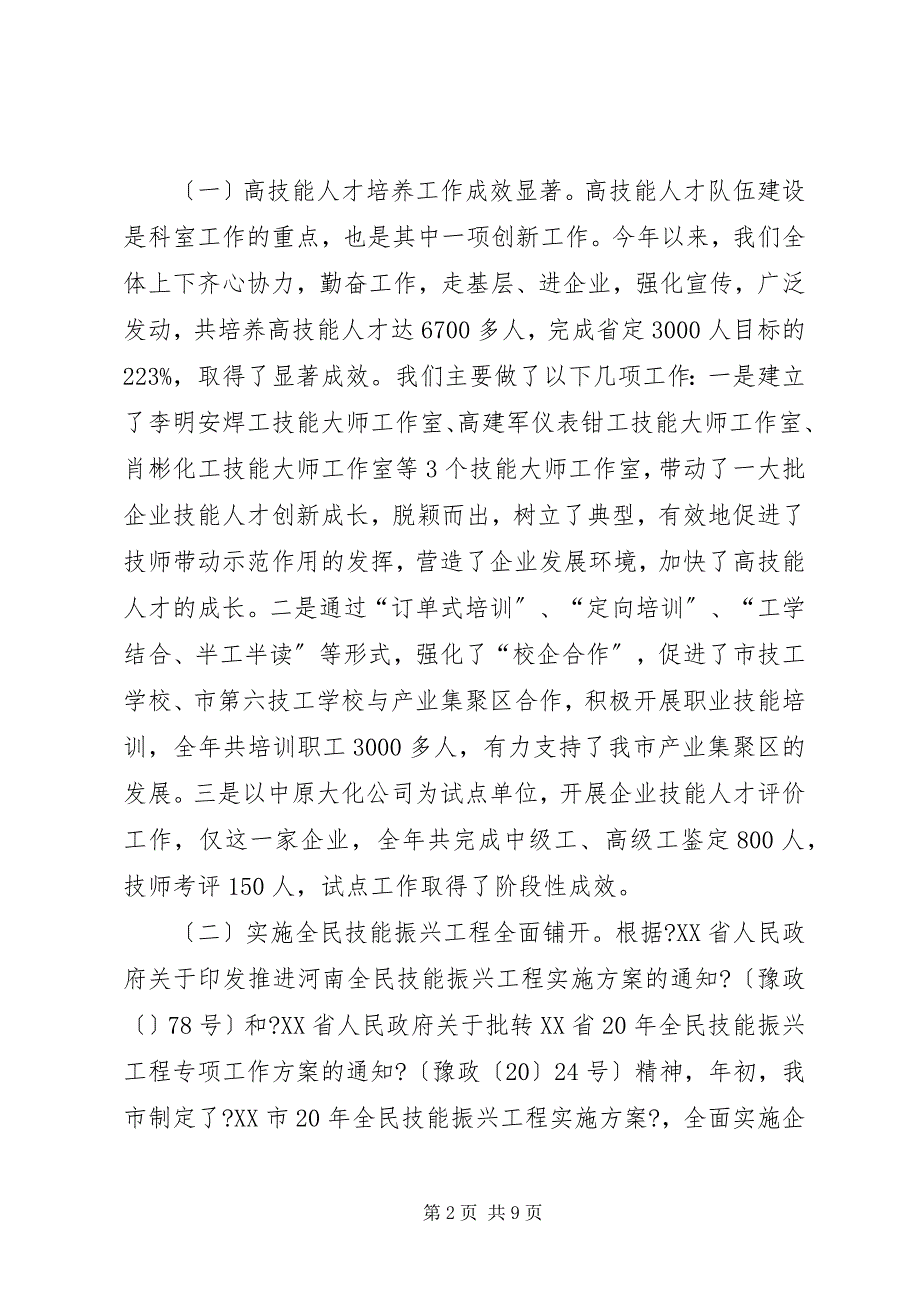 〔一〕高技能人才培养工作成效显著。高技能人才队伍建设
是科室工作的重点，也是其中一项创新工作。今年以来，我们全
体上下齐心协力，勤奋工作，走基层、进企业，强化宣传，广泛
发动，共培养高技能人才达 6700 多人，完成省定 3000 人目标的
223%，取得了显著成效。我们主要做了以下几项工作：一是建立
了李明安焊工技能大师工作室、高建军仪表钳工技能大师工作室、
肖彬化工技能大师工作室等 3 个技能大师工作室，带动了一大批
企业技能人才创新成长，脱颖而出，树立了典型，有效地促进了
技师带动示范作用的发挥，营造了企业发展环境，加快了高技能
人才的成长。二是通过“订单式培训〞、“定向培训〞、“工学
结合、半工半读〞等形式，强化了“校企合作〞，促进了市技工
学校、市第六技工学校与产业集聚区合作，积极开展职业技能培
训，全年共培训职工 3000 多人，有力支持了我市产业集聚区的
发展。三是以中原大化公司为试点单位，开展企业技能人才评价
工作，仅这一家企业，全年共完成中级工、高级工鉴定 800 人，
技师考评 150 人，试点工作取得了阶段性成效。
〔二〕实施全民技能振兴工程全面铺开。根据?XX 省人民政
府关于印发推进河南全民技能振兴工程实施方案的通知?〔豫政
〔〕78 号〕和?XX 省人民政府关于批转 XX 省 20 年全民技能振兴
工程专项工作方案的通知?〔豫政〔20〕24 号〕精神，年初，我
市制定了?XX 市 20 年全民技能振兴工程实施方案?，全面实施企
第 2 页 共 9 页